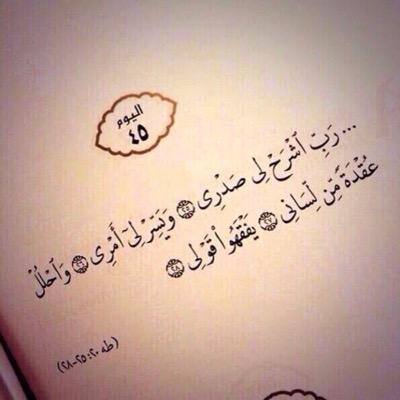 اليوم
٤٥
... رَبِّ ٱشْرَحْ لِى صَدْرِى ٢٥ وَيَسِّرْ لِىٓ أَمْرِى ٢٦ وَٱحْلُلْ
عُقْدَةً مِّن لِّسَانِى ٢٧ يَفْقَهُوا۟ قَوْلِى ٢٨
(طه ٢٠: ٢٥-٢٨)